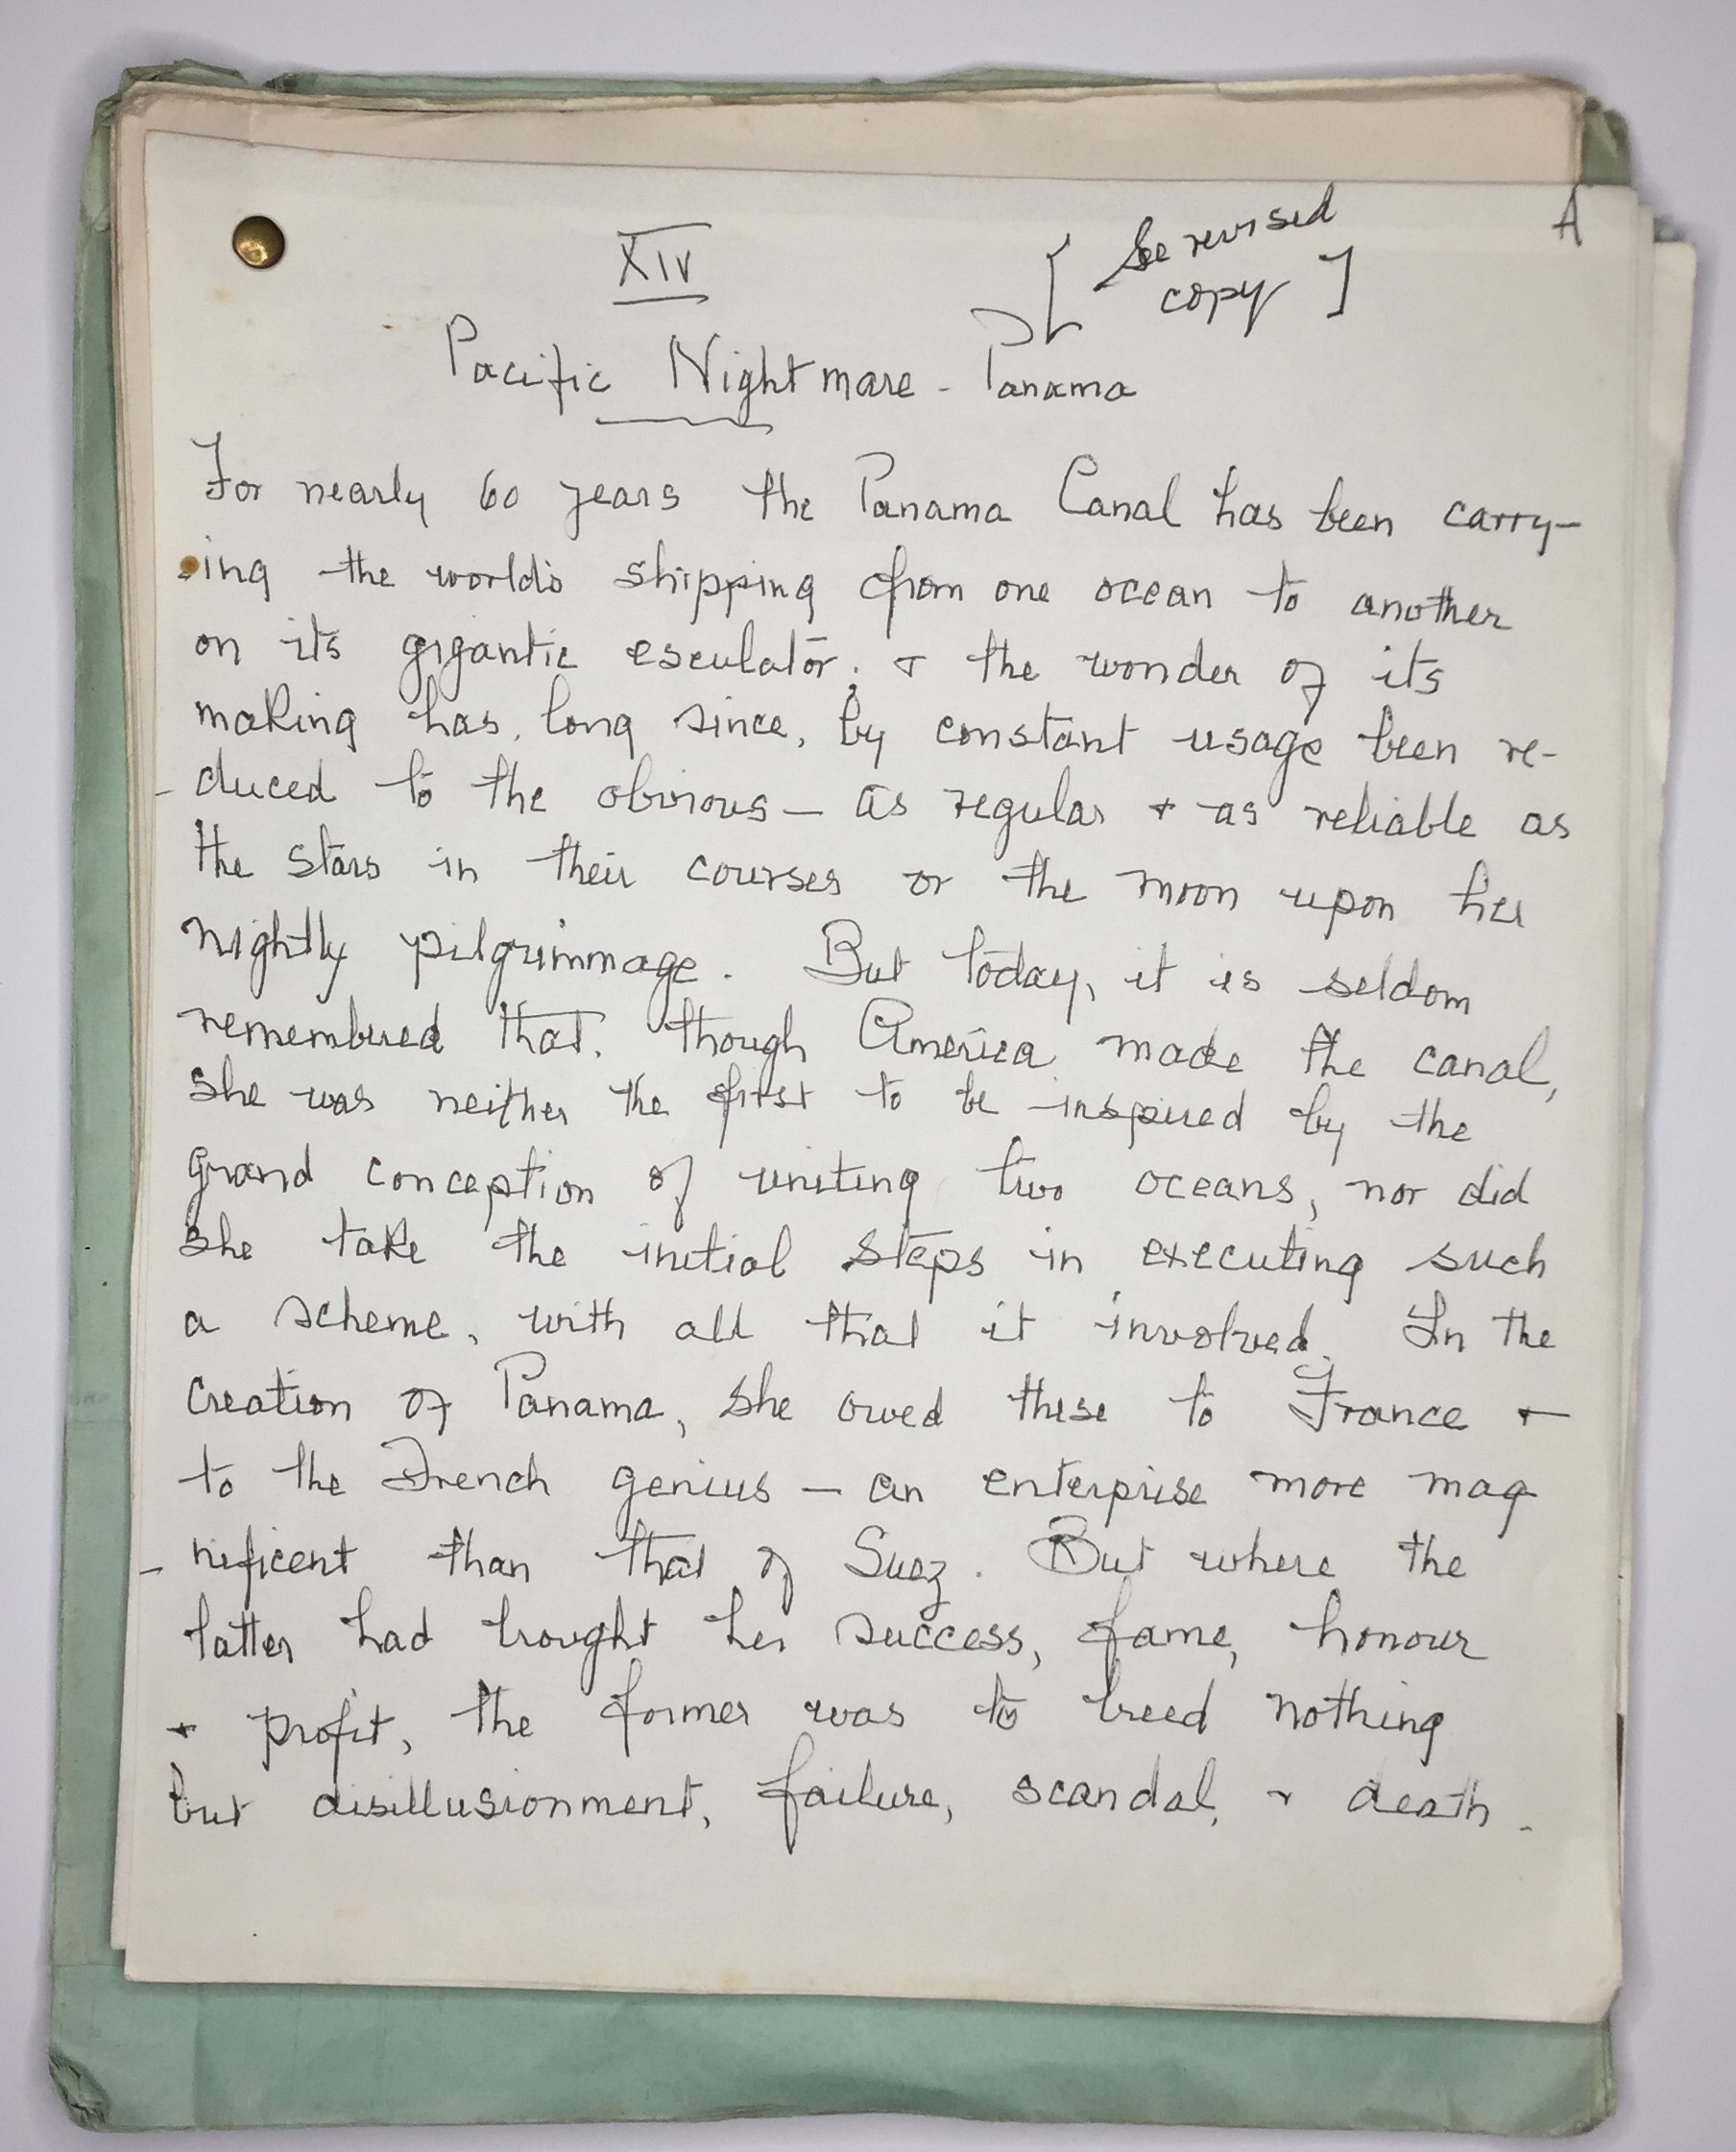 A
XIV
[ See revised
copy ]
Pacific Nightmare - Panama
For nearly 60 years the Panama Canal has been carry-
ing the world's shipping from one ocean to another
on its gigantic esculator; & the wonder of its
making has, long since, by constant usage been re-
- duced to the obvious — as regular & as reliable as
the stars in their courses or the moon upon her
nightly pilgrimmage. But today, it is seldom
remembered that, though America made the canal,
she was neither the first to be inspired by the
grand conception of uniting two oceans, nor did
she take the initial steps in executing such
a scheme, with all that it involved. In the
creation of Panama, she owed these to France &
to the French genius — an enterprise more mag
- nificent than that of Suez. But where the
latter had brought her success, fame, honour
& profit, the former was to breed nothing
but disillusionment, failure, scandal, & death.